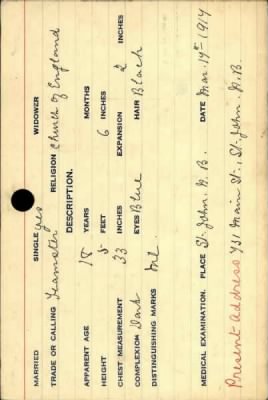 MARRIED SINGLE yes WIDOWER
TRADE OR CALLING Teamster RELIGION Church of England
DESCRIPTION.
APPARENT AGE 18 YEARS MONTHS
HEIGHT 5 FEET 6 INCHES
CHEST MEASUREMENT 33 INCHES EXPANSION 2 INCHES
COMPLEXION Dark EYES Blue HAIR Black
DISTINGUISHING MARKS
MEDICAL EXAMINATION. PLACE St. John, N. B. DATE Mar. 19th 1917
Present address 731 Main St., St. John, N. B.